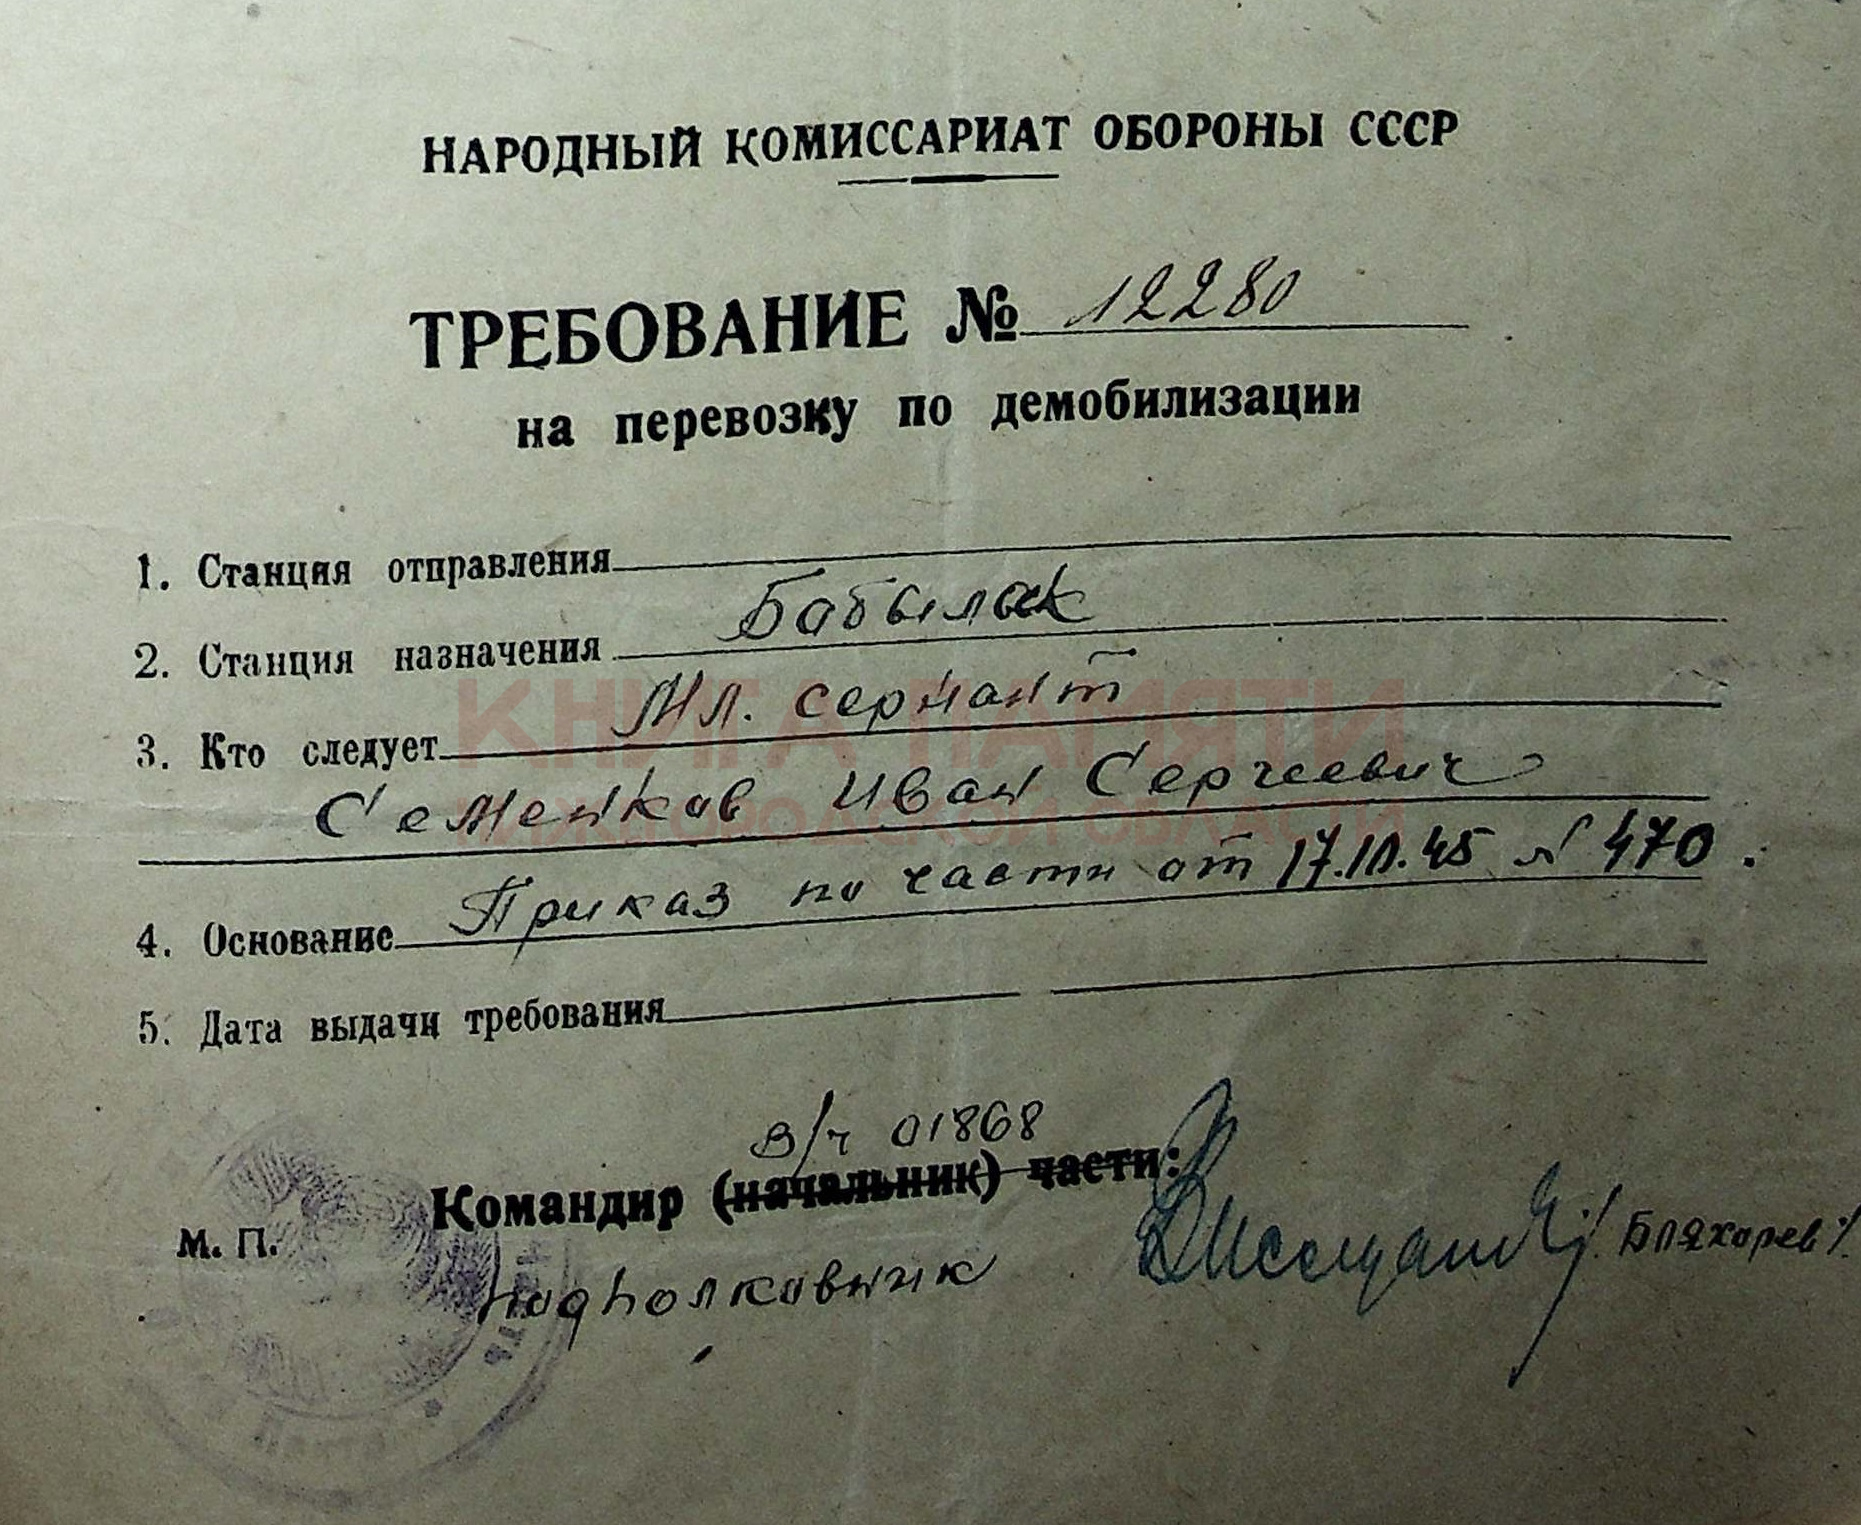 НАРОДНЫЙ КОМИССАРИАТ ОБОРОНЫ СССР
ТРЕБОВАНИЕ № 12280
на перевозку по демобилизации
1. Станция отправления
2. Станция назначения Бабылак
3. Кто следует Мл. сержант
Семенков Иван Сергеевич
КНИГА ПАМЯТИ
НИЖЕГОРОДСКОЙ ОБЛАСТИ
4. Основание Приказ по части от 17.10.45 N 470.
5. Дата выдачи требования
В/ч 01868
Командир (начальник) части:
М. П.
подполковник /Бляхарев/